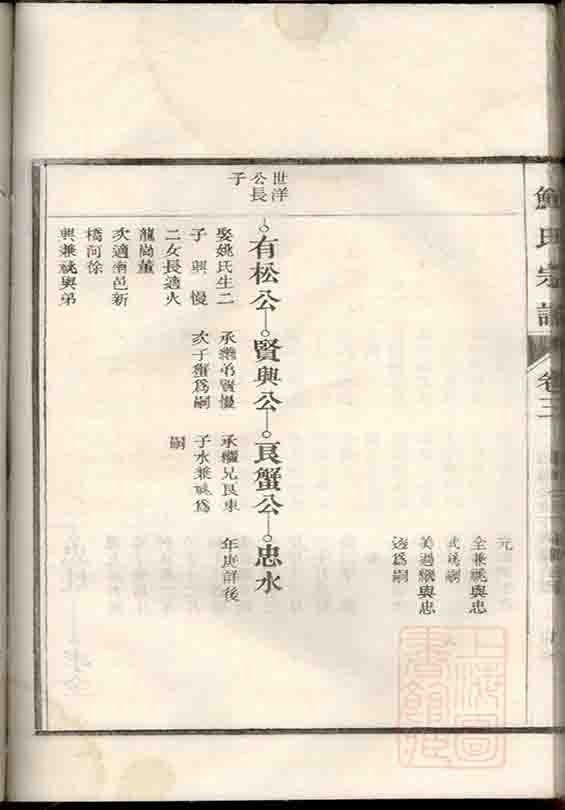 鮑氏宗譜
卷三
元
全兼祧與忠
武爲嗣
美過繼與忠
透爲嗣
世洋
公長
子
有松公
賢與公
良蟹公
忠水
娶姚氏生二
子興慢
二女長適火
龍崗董
次適南邑新
橋河徐
興兼祧與弟
承繼弟賢慢
次子蟹爲嗣
承繼兄良東
子水兼祧爲
嗣
年庚詳後
上海圖書館藏